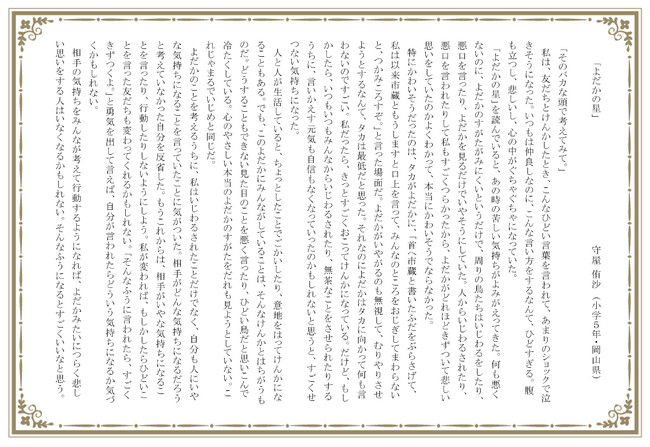 「よだかの星」
守屋 侑沙 （小学５年・岡山県）
「そのバカな頭で考えてみて。」
私は、友だちとけんかしたとき、こんなひどい言葉を言われて、あまりのショックで泣
きそうになった。いつもは仲良しなのに、こんな言い方をするなんて、ひどすぎる。腹
も立つし、悲しいし、心の中がぐちゃぐちゃになっていた。
「よだかの星」を読んでいると、あの時の苦しい気持ちがよみがえってきた。何も悪く
ないのに、よだかのすがたがみにくいというだけで、周りの鳥たちはいじわるをしたり、
悪口を言ったり、よだかを見るだけでいやそうにしていた。人からいじわるされたり、
悪口を言われたりして私もすごくつらかったから、よだかがどれほどきずついて悲しい
思いをしていたのかよくわかって、本当にかわいそうでならなかった。
特にかわいそうだったのは、タカがよだかに、「首へ市蔵と書いたふだをぶらさげて、
私は以来市蔵ともうしますと口上を言って、みんなのところをおじぎしてまわらない
と、つかみころすぞ。」と言った場面だ。よだかがいやがるのも無視して、むりやりさせ
ようとするなんて、タカは最低だと思った。それなのによだかはタカに向かって何も言
わないのですごい。私だったら、きっとすごくおこってけんかになっている。だけど、もし
かしたら、いつもいつもみんなからいじわるされたり、無茶なことをさせられたりする
うちに、言いかえす元気も自信もなくなっていったのかもしれないと思うと、すごくせ
つない気持ちになった。
人と人が生活していると、ちょっとしたことでごかいしたり、意地をはってけんかにな
ることもある。でも、このよだかにみんながしていることは、そんなけんかとはちがうも
のだ。どうすることもできない見た目のことを悪く言ったり、ひどい鳥だと思いこんで
冷たくしている。心のやさしい本当のよだかのすがたをだれも見ようとしていない。こ
れじゃまるでいじめと同じだ。
よだかのことを考えるうちに、私はいじわるされたことだけでなく、自分も人にいや
な気持ちになることを言っていたことに気がついた。相手がどんな気持ちになるだろう
と考えていなかった自分を反省した。もうこれからは、相手がいやな気持ちになるこ
とを言ったり、行動したりしないようにしよう。私が変われば、もしかしたらひどいこ
とを言った友だちも変わってくれるかもしれない。「そんなふうに言われたら、すごく
きずつくよ。」と勇気を出して言えば、自分が言われたらどういう気持ちになるか気づ
くかもしれない。
相手の気持ちをみんなが考えて行動するようになれば、よだかみたいにつらく悲し
い思いをする人はいなくなるかもしれない。そんなふうになるとすごくいいなと思う。